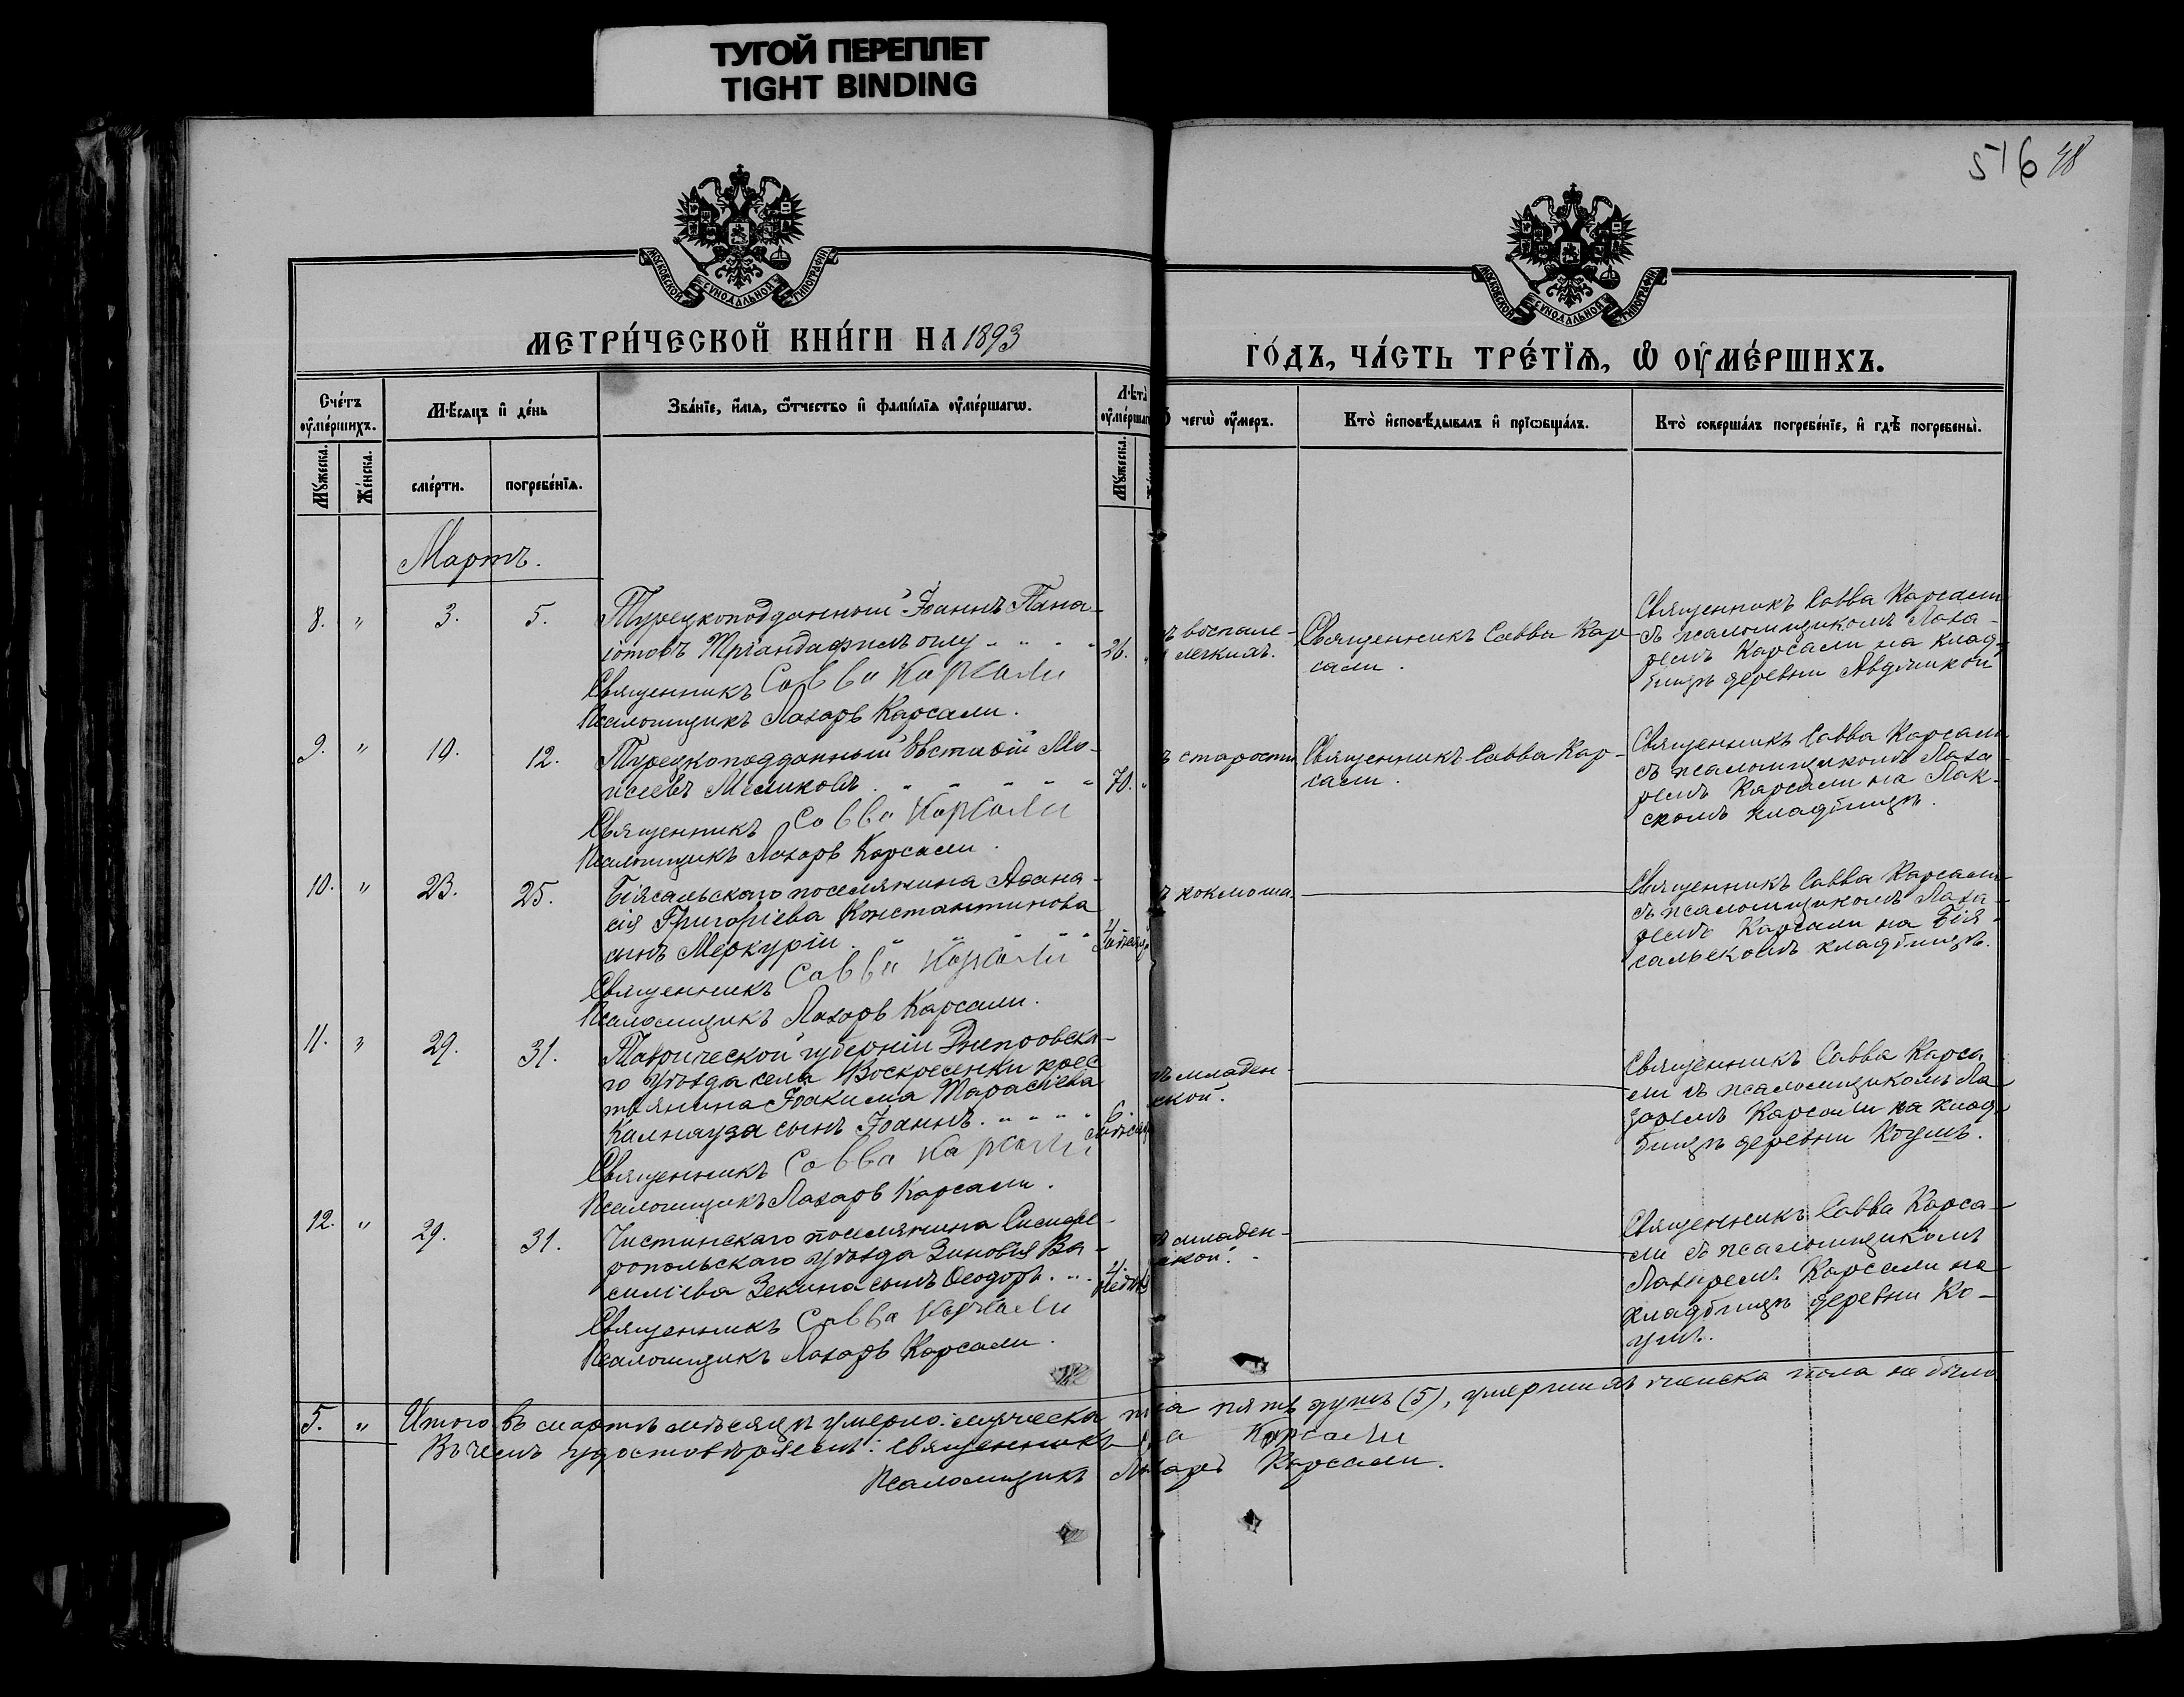 ТУГОЙ ПЕРЕПЛЕТ
TIGHT BINDING
516 48
МОСКОВСКОЙ СѴНОДАЛЬНОЙ ТИПОГРАФІИ
МОСКОВСКОЙ СѴНОДАЛЬНОЙ ТИПОГРАФІИ
МЕТРИ́ЧЕСКОЙ КНИ́ГИ НА 1893
ГО́ДЪ, ЧА́СТЬ ТРЕ́ТЇѦ, Ѡ ОУМЕ́РШИХЪ.
Сче́тъ оуме́ршихъ.
Мѣ́сѧцъ и де́нь
Зва́нїе, и́мѧ, ѻ́тчество и фами́лїѧ оуме́ршагѡ.
Лѣта̀ оуме́ршаг
чегѡ̀ оу́меръ.
Кто̀ исповѣ́дывалъ и прїѡбща́лъ.
Кто̀ соверша́лъ погребе́нїе, и гдѣ̀ погребены̀.
Мꙋ́жеска.
Же́нска.
сме́рти.
погребе́нїѧ.
Мꙋ́жеска.
Мартъ.
8. " 3. 5. Турецкоподданный Іоаннъ Пана-
іотовъ Тріандафилъ оглу 26.
Священникъ Савва Карсали
Псаломщикъ Лазарь Карсали.
ъ воспале-
легкихъ.
Священникъ Савва Кар-
сали.
Священникъ Савва Карсали
съ псаломщикомъ Лаза-
ремъ Карсали на клад-
бищѣ деревни
9. " 10. 12. Турецкоподданный Евстаѳій Мо-
исеевъ Меликовъ 70.
Священникъ Савва Карсали
Псаломщикъ Лазарь Карсали.
ъ старости
Священникъ Савва Кар-
сали.
Священникъ Савва Карсали
съ псаломщикомъ Лаза-
ремъ Карсали на Лак-
скомъ кладбищѣ.
10. " 23. 25. Біясальскаго поселянина Аѳана-
сія Григоріева Константинова
сынъ Меркурій. 4
Священникъ Савва Карсали
Псаломщикъ Лазарь Карсали.
ъ коклюша.
Священникъ Савва Карсали
съ псаломщикомъ Лаза-
ремъ Карсали на Бія-
сальскомъ кладбищѣ.
11. " 29. 31. Таврической губерніи Днепровска-
го уѣзда села Воскресенки крес-
тьянина Іоакима Тарасіева
Калнауза сынъ Іоаннъ. 6.
Священникъ Савва Карсали
Псаломщикъ Лазарь Карсали.
ъ младен-
ской.
Священникъ Савва Карса-
ли съ псаломщикомъ Ла-
заремъ Карсали на клад-
бищѣ деревни Коушъ.
12. " 29. 31. Чистинскаго поселянина Симфе-
ропольскаго уѣзда Зиновія Ва-
силіева Зекина сынъ Ѳеодоръ.
Священникъ Савва Карсали
Псаломщикъ Лазарь Карсали.
ъ младен-
ской.
Священникъ Савва Карса-
ли съ псаломщикомъ
Лазаремъ Карсали на
кладбищѣ деревни Ко-
ушъ.
5. " Итого въ мартѣ мѣсяцѣ умерло: мужеска пола пять душъ (5), умершихъ женска пола не было
Въ чемъ удостовѣряемъ: Священникъ Савва Карсали
Псаломщикъ Лазарь Карсали.